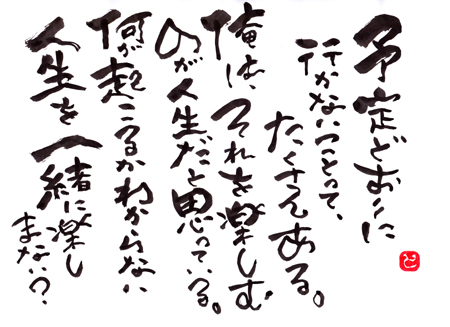 予定どおりに
行かないことって、
たくさんある。
俺は、それを楽しむ
のが人生だと思っている。
何が起こるかわからない
人生を一緒に楽し
まない?
と